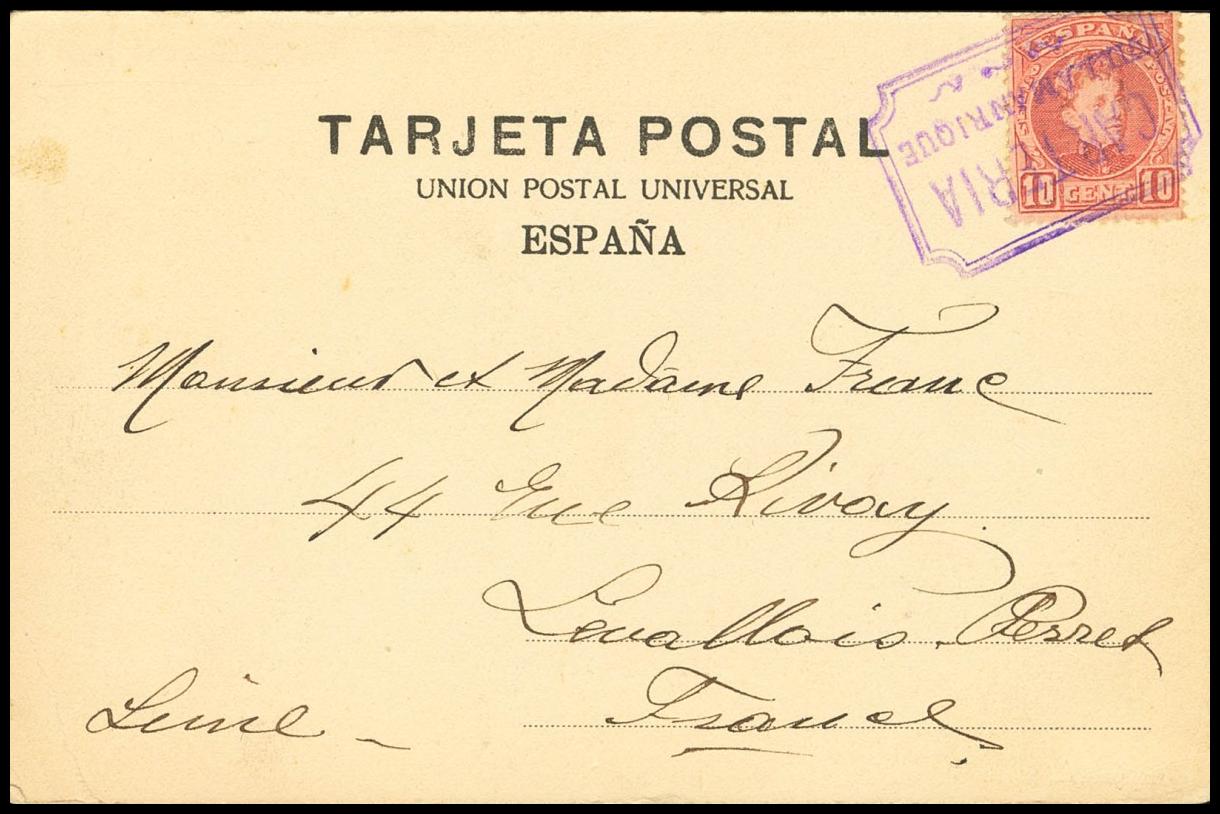 TARJETA POSTAL
UNION POSTAL UNIVERSAL
ESPAÑA
ESPAÑA
10 CENT. 10
CARTERIA
MANRIQUE
Monsieur et Madame Franc
44 Rue Rivay
Levallois. Perret
Seine
France